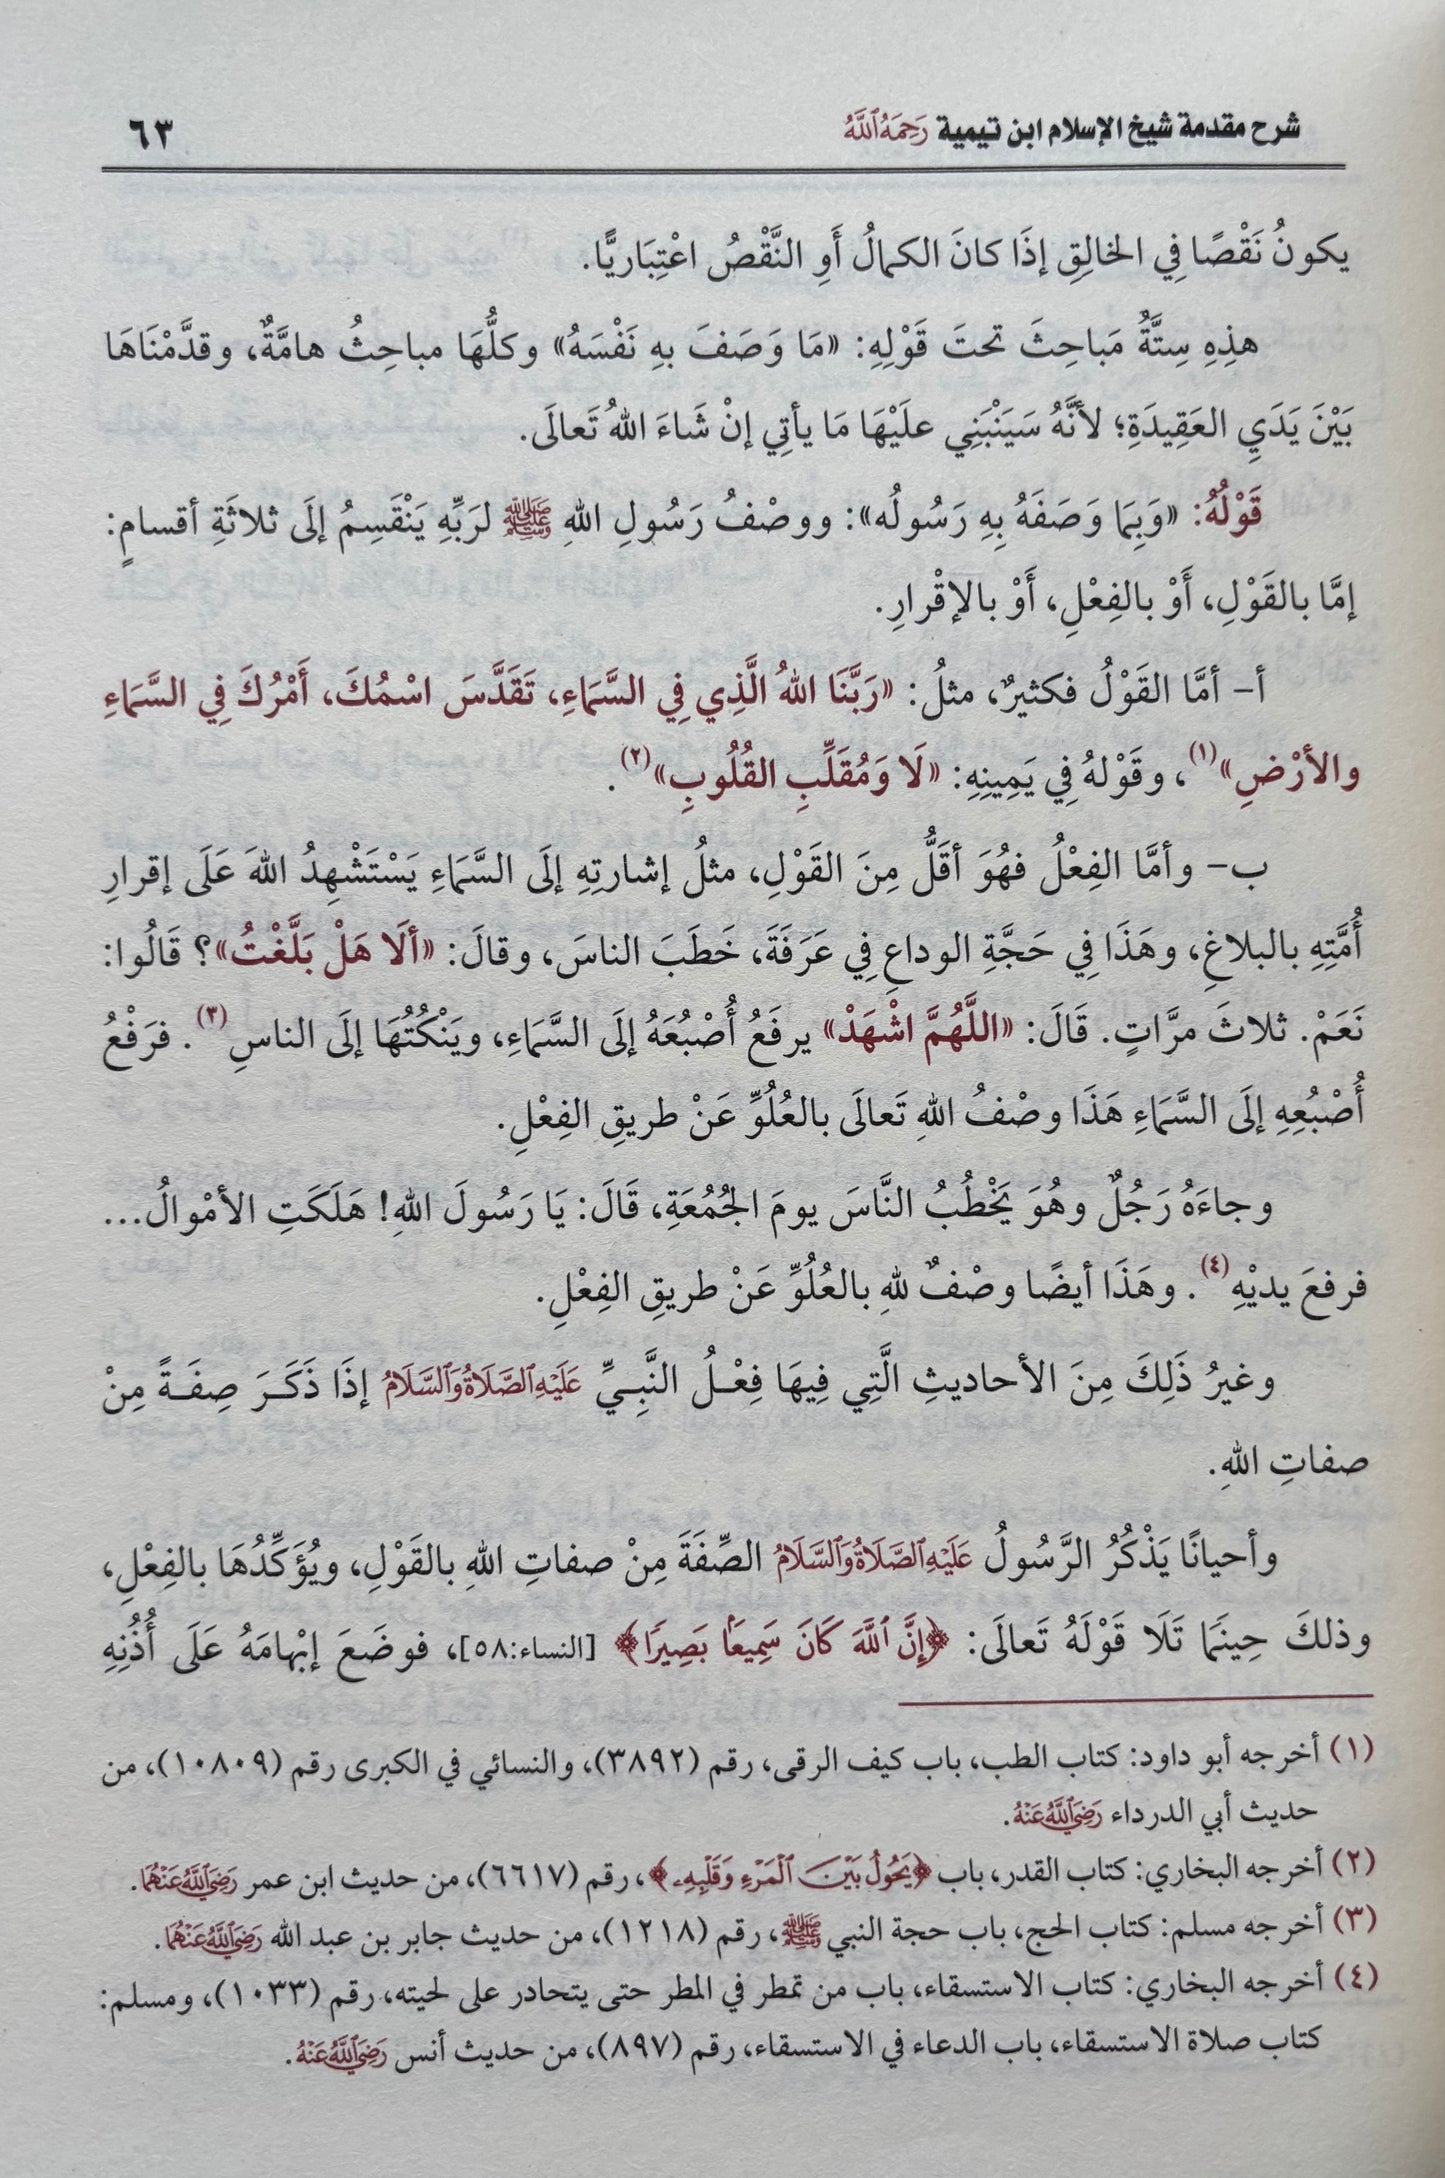 شرح مقدمة شيخ الإسلام ابن تيمية رَحِمَهُ ٱللَّهُ ٦٣
يكونُ نَقْصًا فِي الخالِقِ إذَا كانَ الكمالُ أَوِ النَّقْصُ اعْتِبَاريًّا.
هذِهِ سِتَّةُ مَباحِثَ تحتَ قَوْلِهِ: «مَا وَصَفَ بهِ نَفْسَهُ» وكلُّهَا مباحِثُ هامَّةٌ، وقدَّمْنَاهَا
بَيْنَ يَدَيِ العَقِيدَةِ؛ لأنَّهُ سَيَنْبَنِي علَيْهَا مَا يأتِي إنْ شَاءَ اللهُ تَعالَى.
قَوْلُهُ: «وَبِمَا وَصَفَهُ بِهِ رَسُولُه»: ووصْفُ رَسُولِ اللهِ ﷺ لرَبِّهِ يَنْقَسِمُ إلَى ثلاثَةِ أقسامٍ:
إمَّا بالقَوْلِ، أَوْ بالفِعْلِ، أَوْ بالإقْرارِ.
أ- أمَّا القَوْلُ فكثيرٌ، مثلُ: «رَبَّنَا اللهُ الَّذِي فِي السَّمَاءِ، تَقَدَّسَ اسْمُكَ، أَمْرُكَ فِي السَّمَاءِ
والأرْضِ»(١)، وقَوْلهُ فِي يَمِينِهِ: «لَا وَمُقَلِّبِ القُلُوبِ»(٢).
ب- وأمَّا الفِعْلُ فهُوَ أقَلُّ مِنَ القَوْلِ، مثلُ إشارتِهِ إلَى السَّمَاءِ يَسْتَشْهِدُ اللهَ عَلَى إقرارِ
أُمَّتِهِ بالبلاغِ، وهَذَا فِي حَجَّةِ الوداعِ فِي عَرَفَةَ، خَطَبَ الناسَ، وقالَ: «ألَا هَلْ بَلَّغْتُ»؟ قَالُوا:
نَعَمْ. ثلاثَ مرَّاتٍ. قَالَ: «اللَّهُمَّ اشْهَدْ» يرفَعُ أُصْبُعَهُ إلَى السَّمَاءِ، ويَنْكُتُهَا إلَى الناسِ(٣). فرَفْعُ
أُصْبُعِهِ إلَى السَّمَاءِ هَذَا وصْفُ اللهِ تَعالَى بالعُلُوِّ عَنْ طريقِ الفِعْلِ.
وجاءَهُ رَجُلٌ وهُوَ يَخْطُبُ النَّاسَ يومَ الجُمُعَةِ، قَالَ: يَا رَسُولَ اللهِ! هَلَكَتِ الأمْوالُ...
فرفعَ يديْهِ(٤). وهَذَا أيضًا وصْفٌ للهِ بالعُلُوِّ عَنْ طريقِ الفِعْلِ.
وغيرُ ذَلِكَ مِنَ الأحاديثِ الَّتِي فِيهَا فِعْـلُ النَّبِـيِّ عَلَيْهِ ٱلصَّلَاةُ وَٱلسَّلَامُ إذَا ذَكَـرَ صِفَـةً مِنْ
صفاتِ اللهِ.
وأحيانًا يَذْكُرُ الرَّسُولُ عَلَيْهِ ٱلصَّلَاةُ وَٱلسَّلَامُ الصِّفَةَ مِنْ صفاتِ اللهِ بالقَوْلِ، ويُؤَكِّدُهَا بالفِعْلِ،
وذلكَ حِينَمَا تَلَا قَوْلَهُ تَعالَى: ﴿إِنَّ ٱللَّهَ كَانَ سَمِيعَۢا بَصِيرًا﴾ [النساء:٥٨]، فوضَعَ إبْهامَهُ عَلَى أُذُنِهِ
(١) أخرجه أبو داود: كتاب الطب، باب كيف الرقى، رقم (٣٨٩٢)، والنسائي في الكبرى رقم (١٠٨٠٩)، من
حديث أبي الدرداء رَضِيَ ٱللَّهُ عَنْهُ.
(٢) أخرجه البخاري: كتاب القدر، باب ﴿يَحُولُ بَيْنَ ٱلْمَرْءِ وَقَلْبِهِۦ﴾، رقم (٦٦١٧)، من حديث ابن عمر رَضِيَ ٱللَّهُ عَنْهُمَا.
(٣) أخرجه مسلم: كتاب الحج، باب حجة النبي ﷺ، رقم (١٢١٨)، من حديث جابر بن عبد الله رَضِيَ ٱللَّهُ عَنْهُمَا.
(٤) أخرجه البخاري: كتاب الاستسقاء، باب من تمطر في المطر حتى يتحادر على لحيته، رقم (١٠٣٣)، ومسلم:
كتاب صلاة الاستسقاء، باب الدعاء في الاستسقاء، رقم (٨٩٧)، من حديث أنس رَضِيَ ٱللَّهُ عَنْهُ.